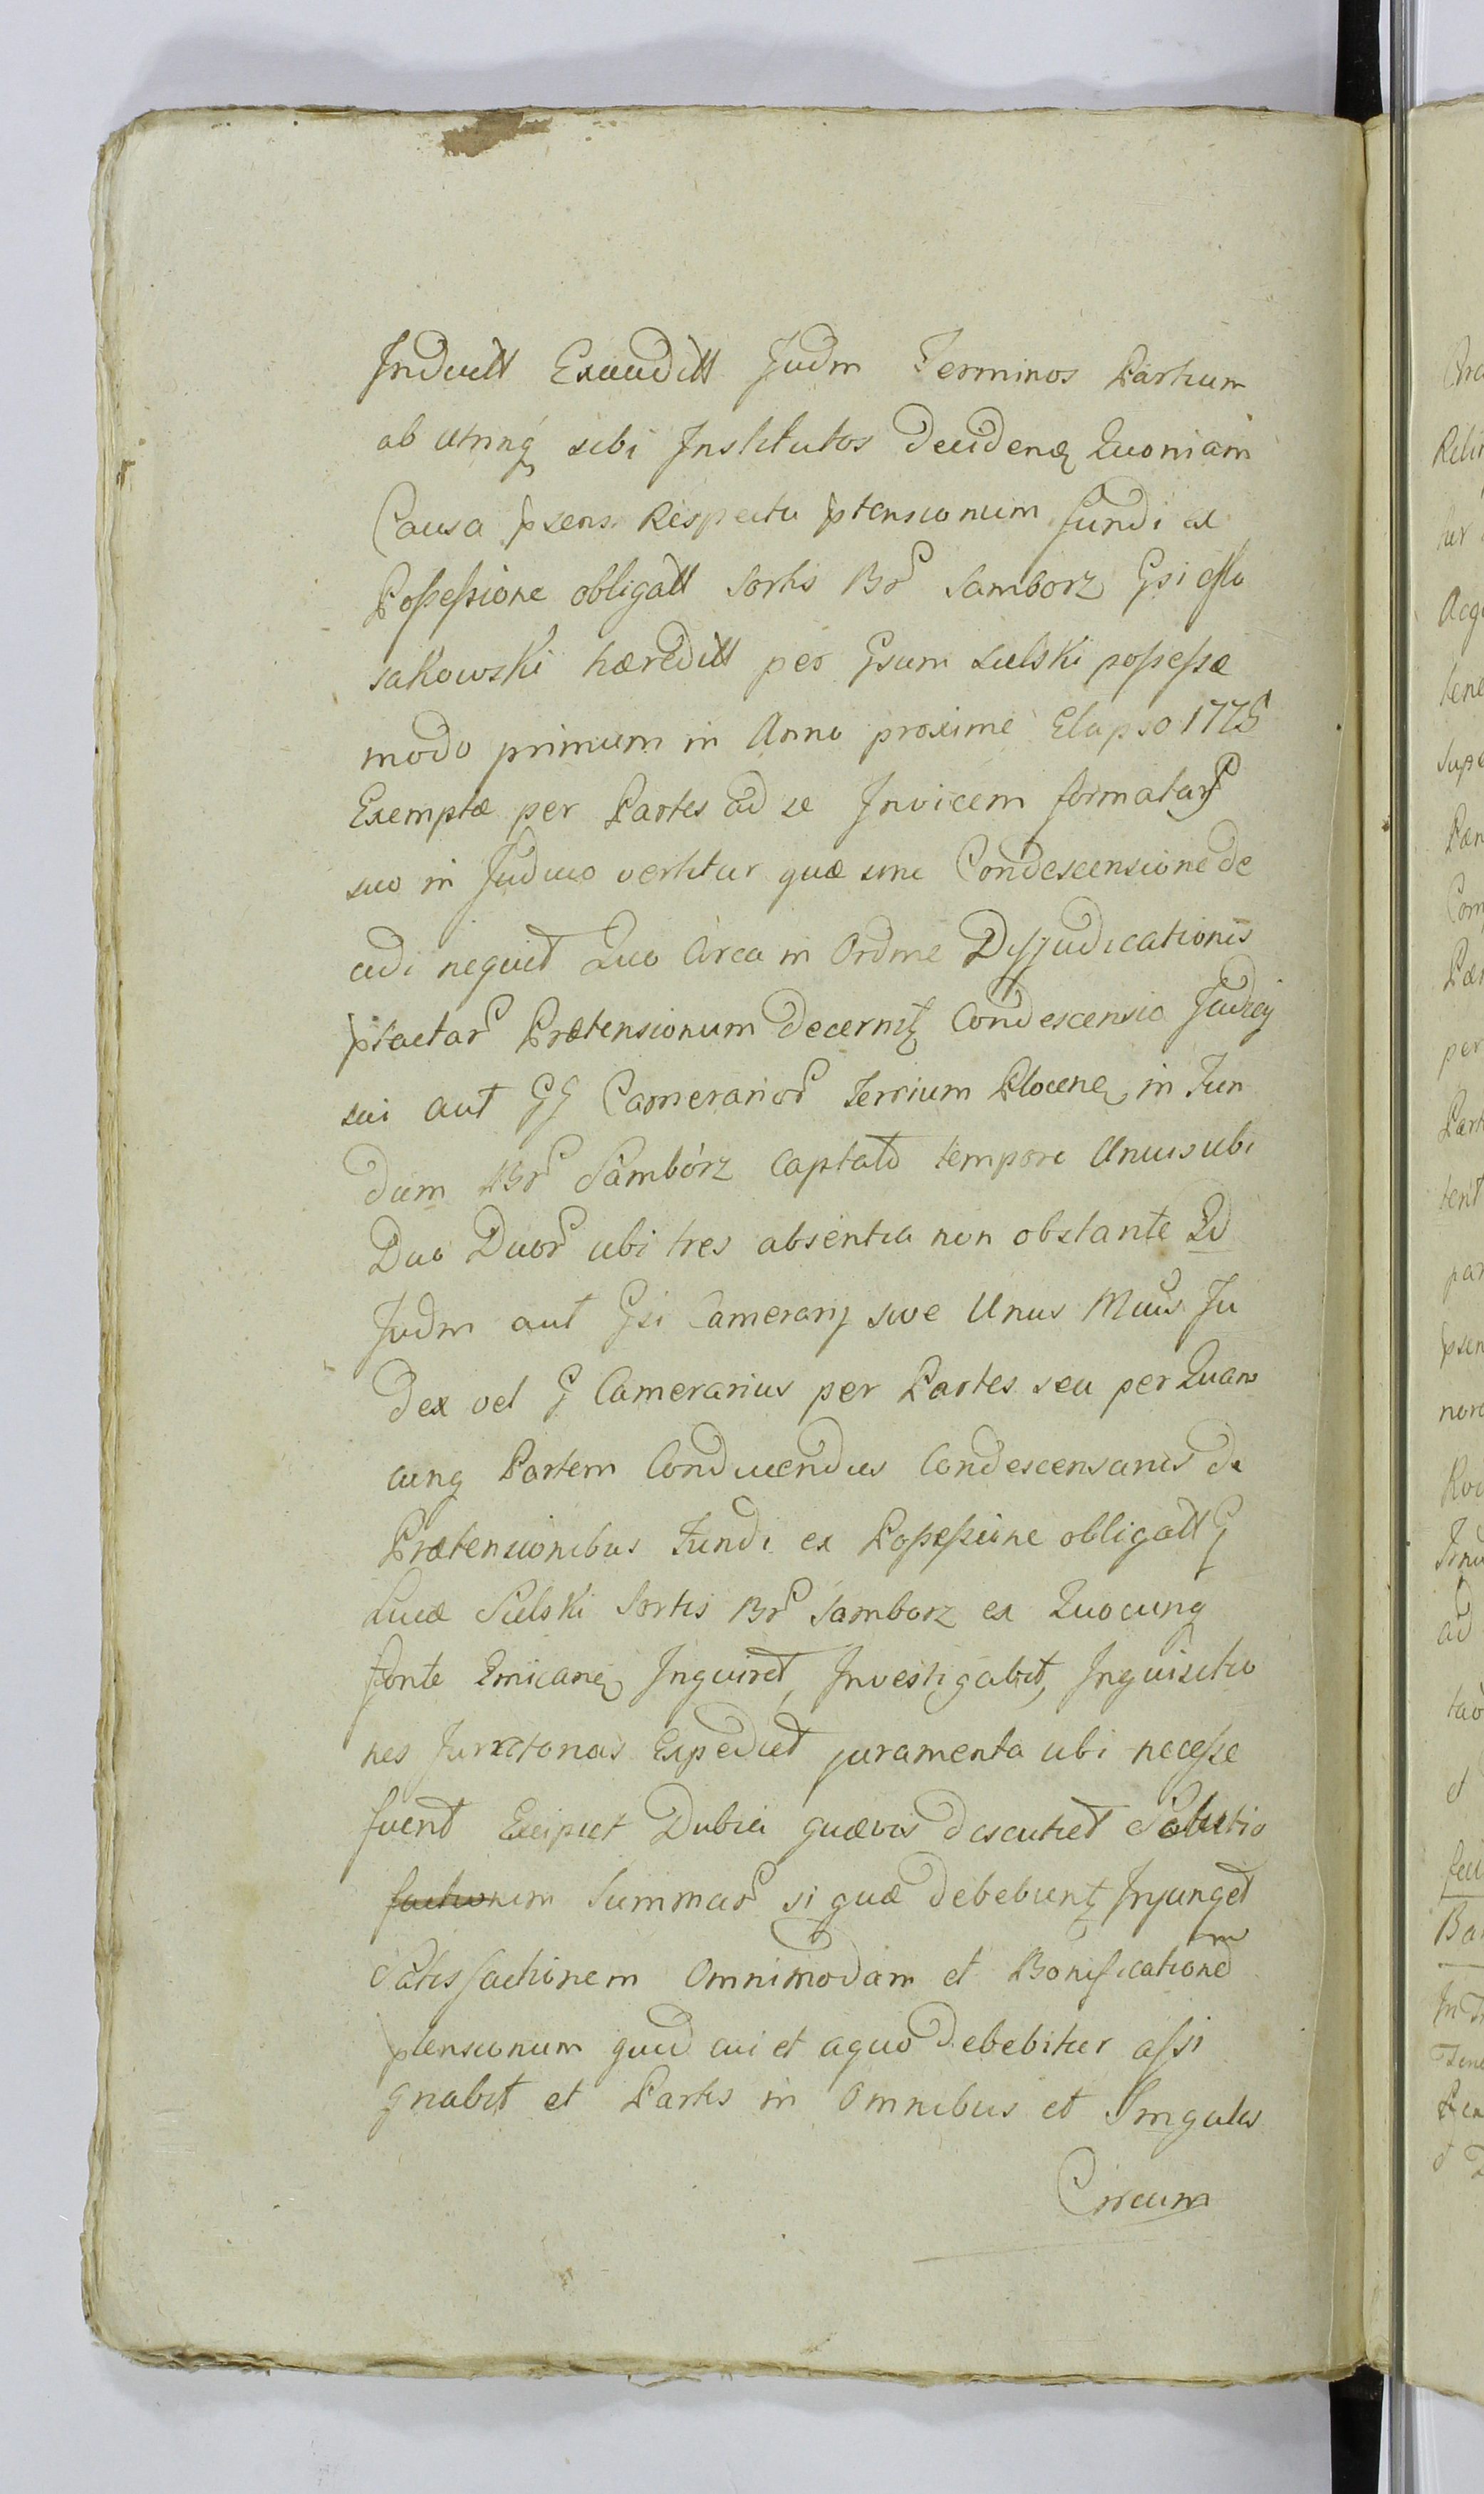 Induett Exaudítt Judm Terminos Partium
ab utrinq sibi Institutos decidend Quoniam
Causa psens Respectu ptensionum fundi ex
Possessione obligatt Sortis Br Samborz Gsi Olu
sakowski hæreditt per Gsum Sulski possessæ
modo primum in Anno proxime Elapso 1775
Exemptæ per Partes ad se Invicem formatar
suo in Judicio vertitur quæ sine Condescensione de
cidi nequit Quo Circa in Ordine Disjudicationis
ptactar Prætensionum decernit Condescensio Judicij
sui aut GG Camerarior Terrium Plocen in Fun
dum Br Sambórz captato tempore Unius ubi
Duo Duor ubi tres absentia non obstante Qd
Judm aut Gsi Camerarij sive Unus Mcus Ju
dex vel G Camerarius per Partes seu per Quam
cunq Partem Conducendus Condescensuris de
Prætensionibus Fundi ex Possessione obligatt G
Lucæ Sulski Sortis Br Samborz ex Quocunq
fonte Emican Inquiret, Investigabit, Inquisitio
nes Jurxctonas Expediet juramenta ubi necesse
fuerit Excipiet Dubia quævis discutiet Solutio
factionem Summar si quæ debebunt Injunget
Satisfactionem Omnimodam et Bonificationem
ptensionum quid cui et aquo debebitur assi
gnabit et Partes in Omnibus et Singulis
Circum